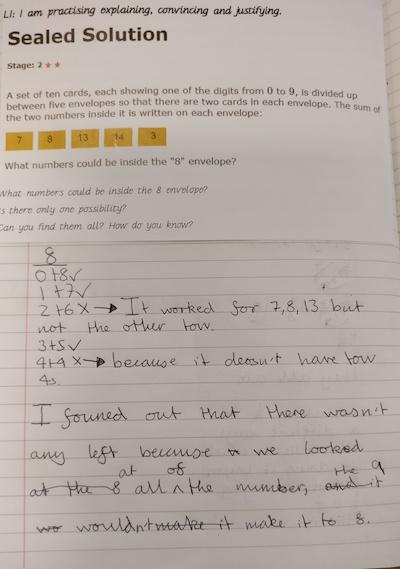 LI: I am practising explaining, convincing and justifying.
Sealed Solution
Stage: 2 ★ ★
A set of ten cards, each showing one of the digits from 0 to 9, is divided up
between five envelopes so that there are two cards in each envelope. The sum of
the two numbers inside it is written on each envelope:
7 8 13 14 3
What numbers could be inside the "8" envelope?
What numbers could be inside the 8 envelope?
Is there only one possibility?
Can you find them all? How do you know?
8
0+8✓
1+7✓
2+6 X → It worked for 7,8,13 but
not the other tow.
3+5✓
4+4 X → because it deosn't have tow
4s.
I founed out that there wasn't
any left because we looked
at the 8 all at of the number, and it the 9
wo wouldn't make it make it to 8.